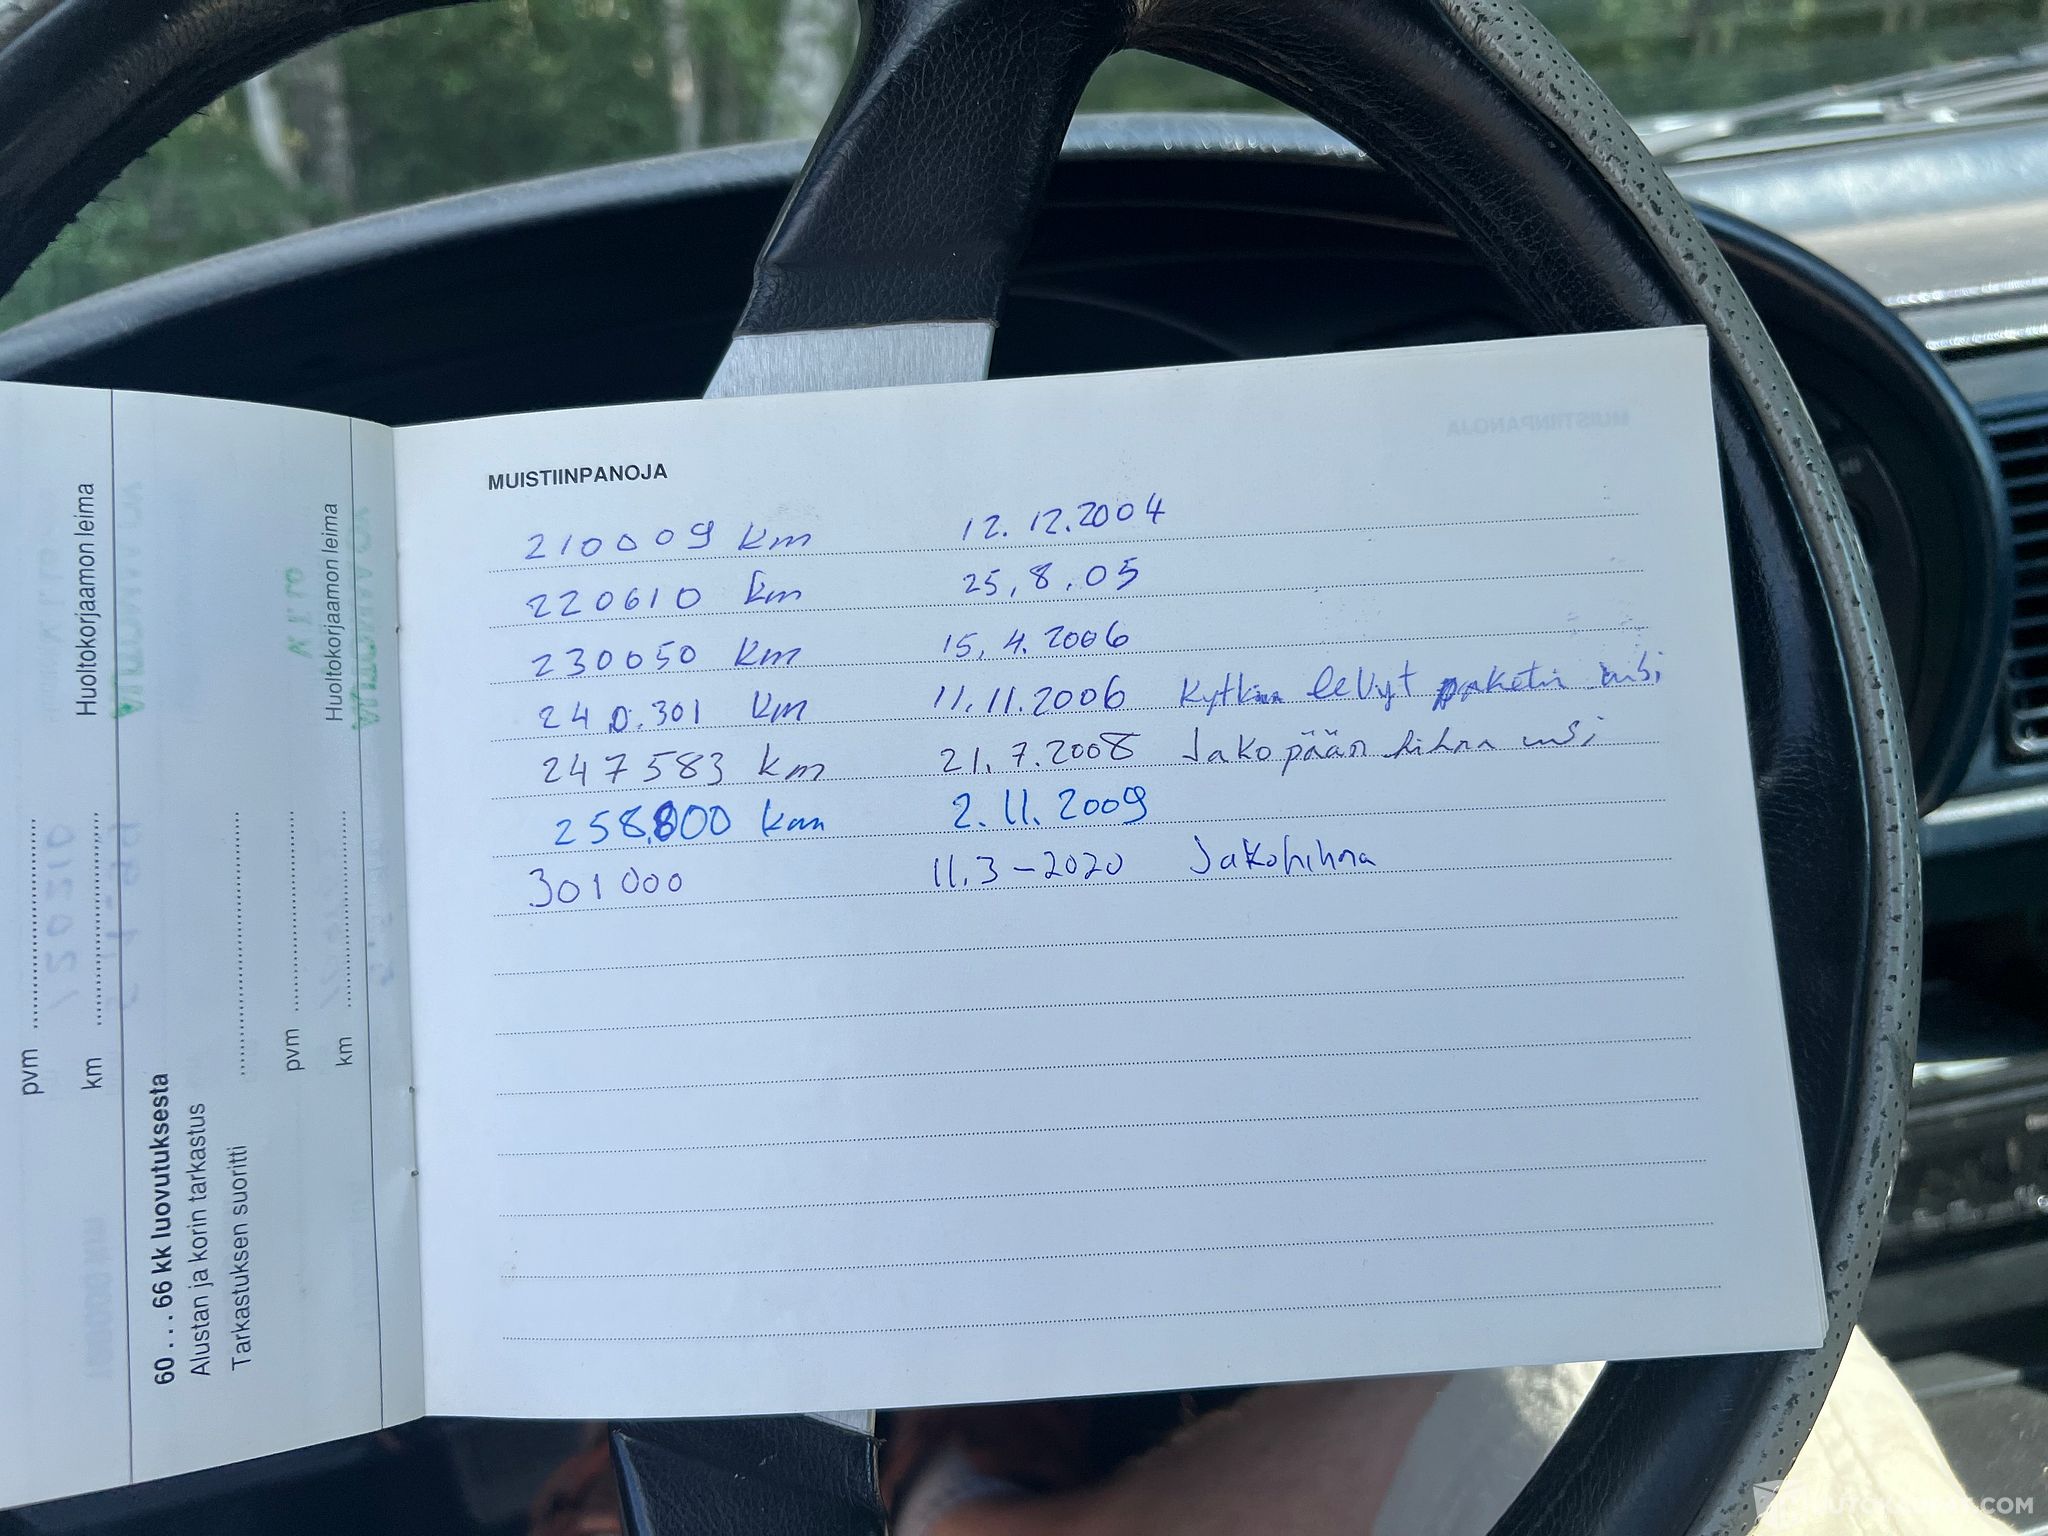 MUISTIINPANOJA
210009 km 12.12.2004
220610 km 25.8.05
230050 km 15.4.2006
240.301 km 11.11.2006 Kytkin levyt paketin uusi
247583 km 21.7.2008 Jakopään hihna uusi
258.800 km 2.11.2009
301000 11.3-2020 Jakohihna
Huoltokorjaamon leima
pvm
km
60...66 kk luovutuksesta
Alustan ja korin tarkastus
Tarkastuksen suoritti
Huoltokorjaamon leima
pvm
km